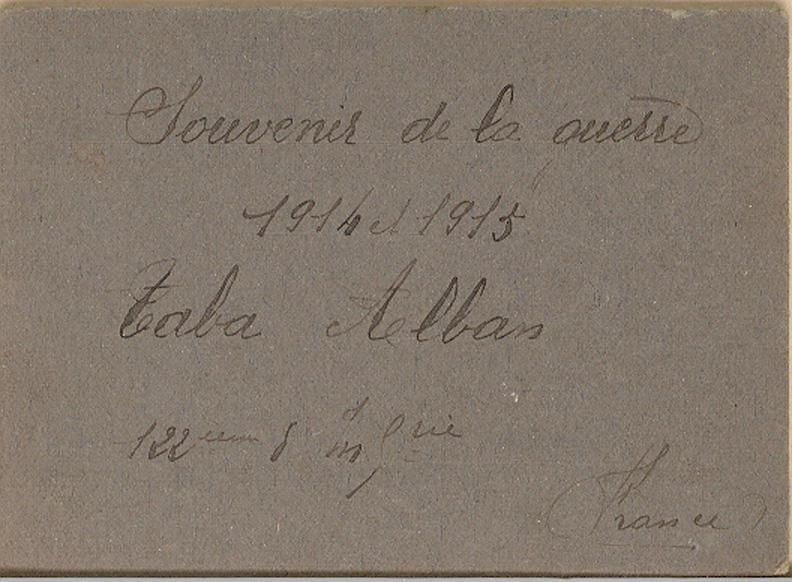 Souvenir de la guerre
1914 et 1915
Taba Alban
122eme d'infrie
(France)